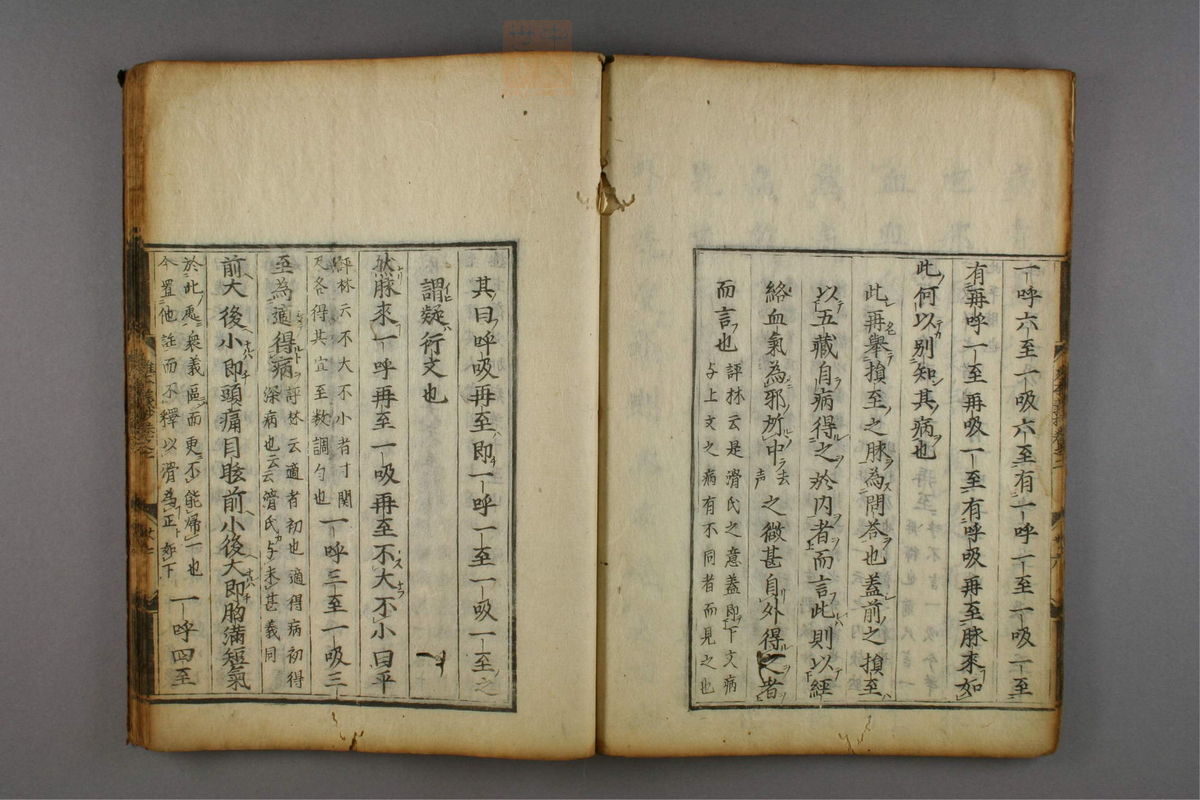 一呼六至一吸六至有一呼一至一吸一至
有再呼一至再吸一至有呼吸再至脉來如
此何以別知其病也
此再舉損至之脉為問答也蓋前之損至
以五藏自病得之於内者而言此則以經
絡血氣為邪所中去声之微甚自外得之者
而言也
評林云是滑氏之意蓋即下文病
与上文之病有不同者而見之也
其曰呼吸再至即一呼一至一吸一至之
謂疑衍文也
然脉來一呼再至一吸再至不大不小曰平
評林云不大不小者寸関
尺各得其宜至数調勻也
一呼三至一吸三
至為適得病
評林云適者初也適得病初得
深病也云云滑氏与未甚義同
前大後小即頭痛目眩前小後大即胸満短氣
於此處衆義區而更不能帰一也
今置他註而不釋以滑為正
下
一呼四至